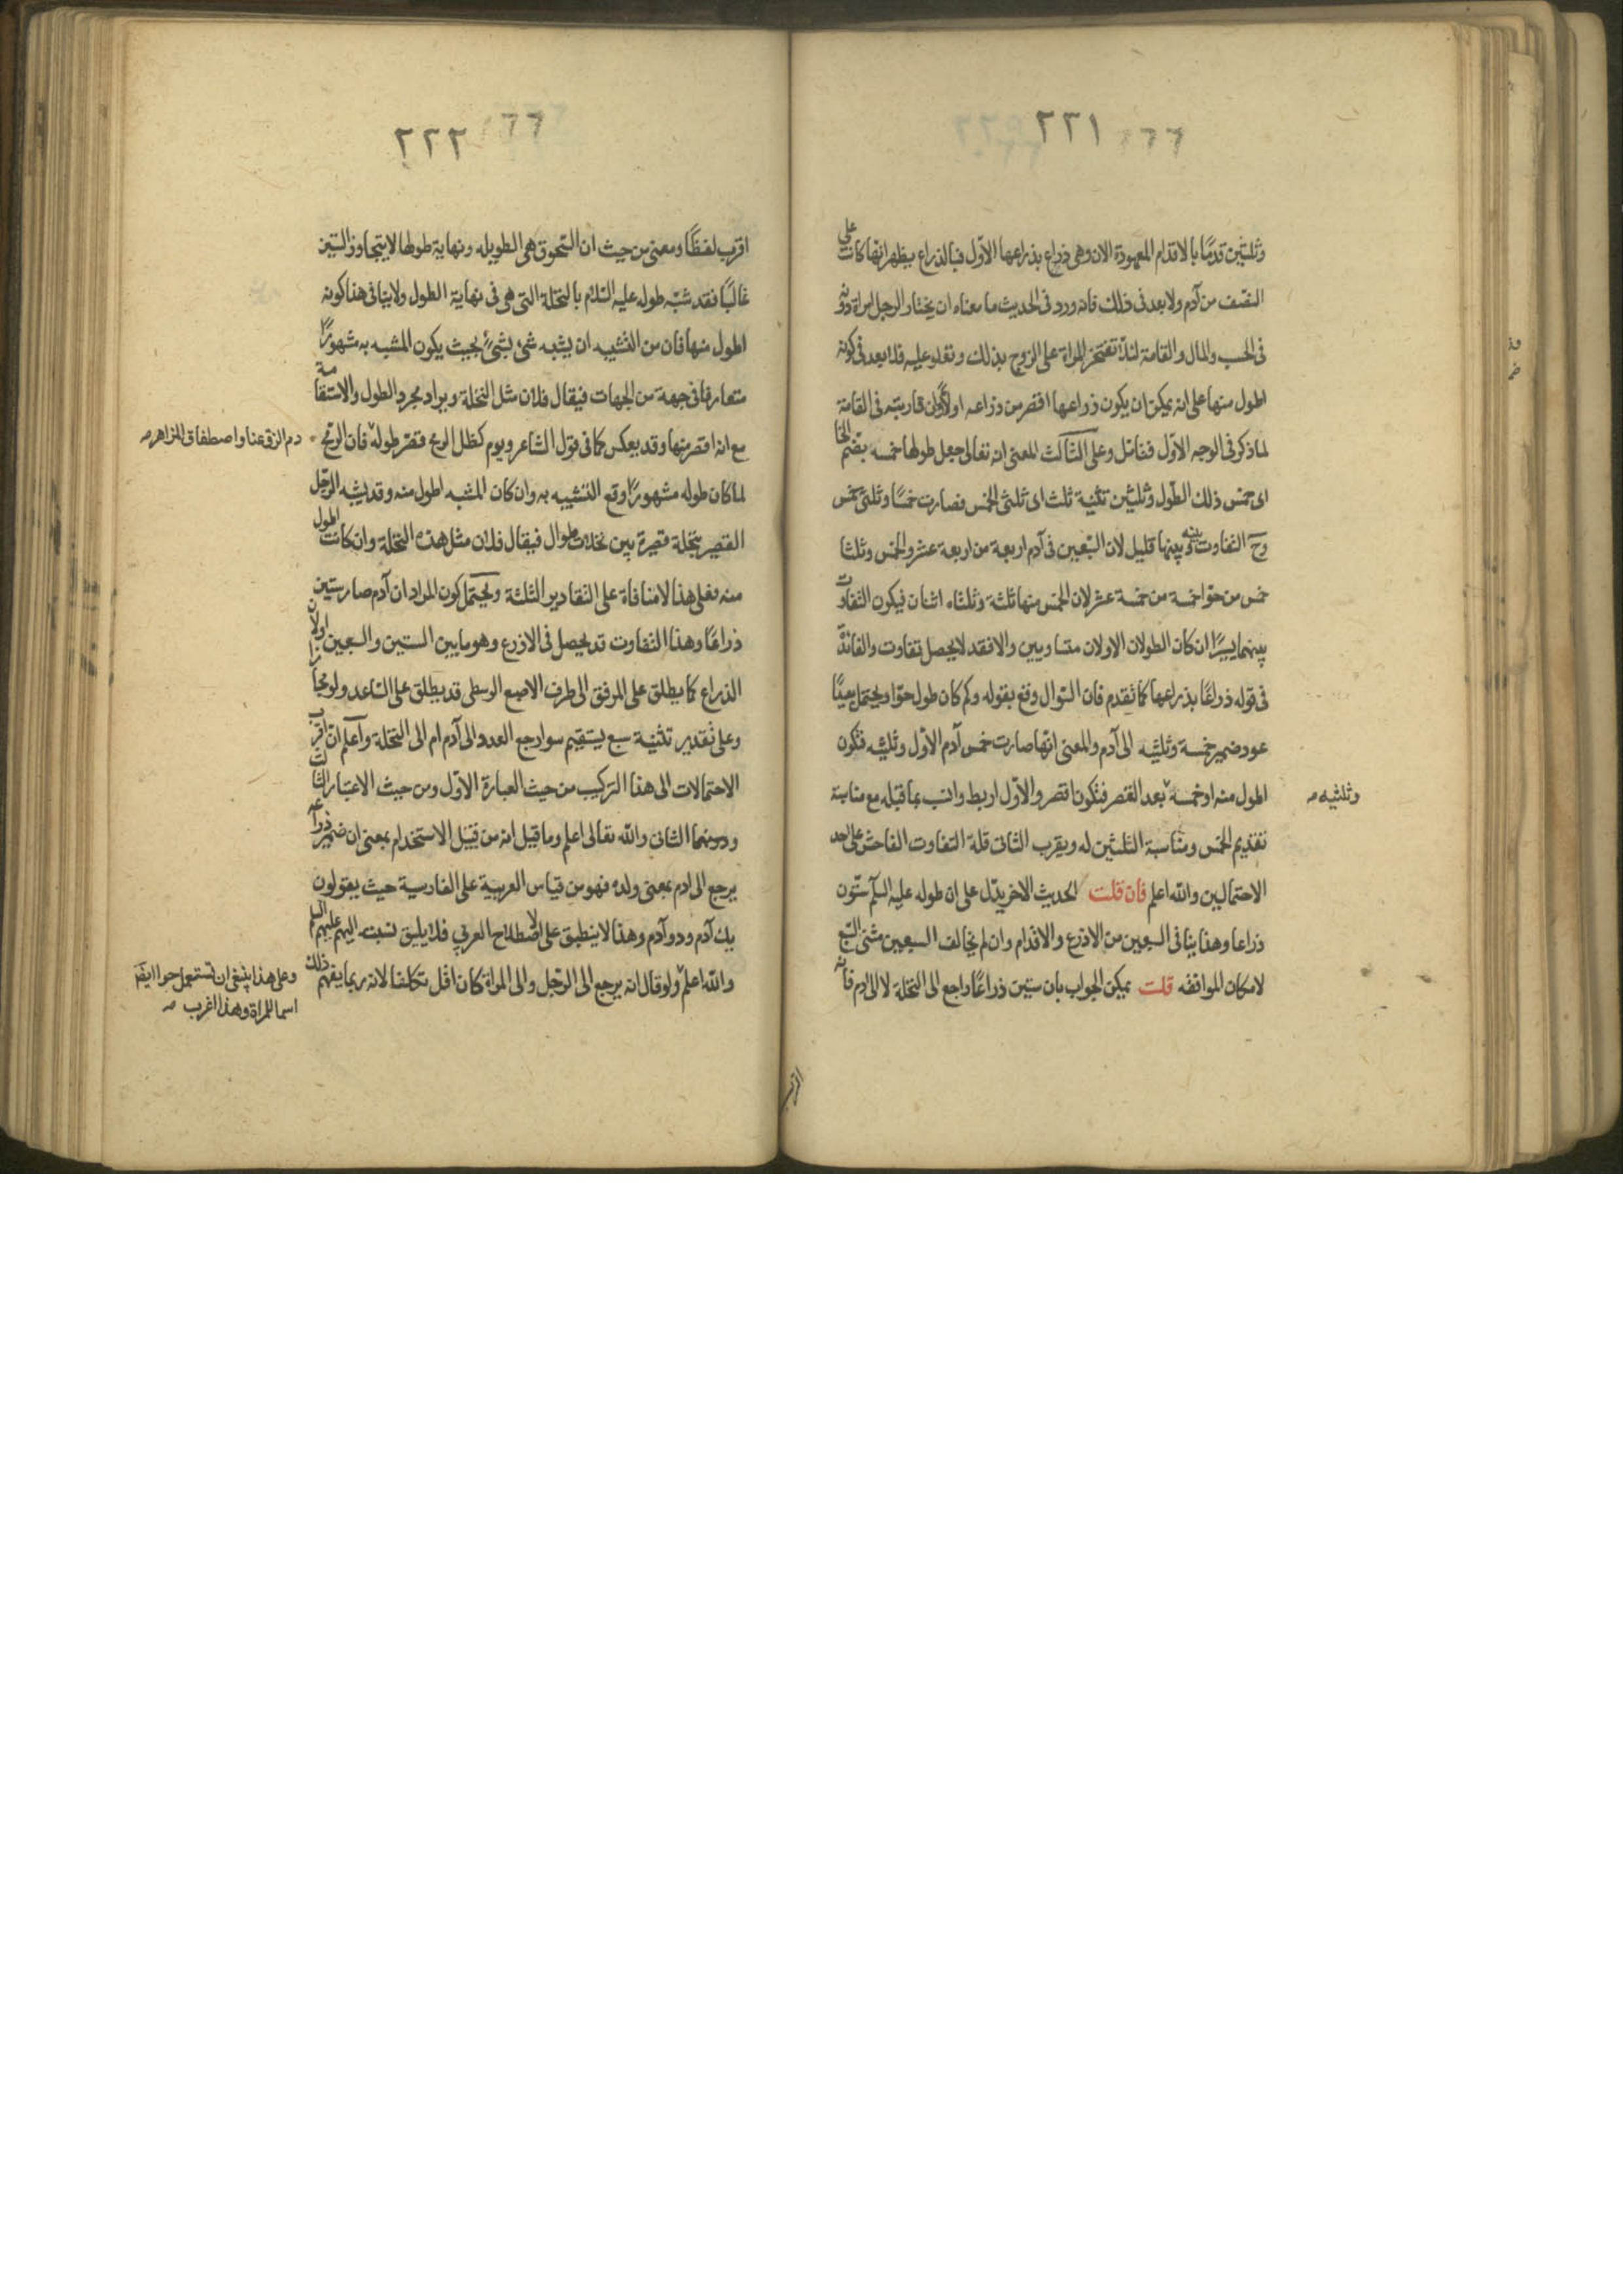 ٢٢١
وثلثين قدمًا بالاقدام المعهودة الان وهى ذراع بذراعها الاوّل فبالذراع يظهر انّها كانت على
النصف من آدم ولا بعد فى ذلك فانه ورد فى الحديث ما معناه ان يختار الرجل امراة دونه
فى الحسب والمال والقامة لئلا تفتخر المراة على الزوج بذلك وتعلو عليه فلا بعد فى كونه
اطول منها على انه يمكن ان يكون ذراعها اقصر من ذراعه اولا وان قاربته فى القامة
لما ذكر فى الوجه الاوّل فتامّل وعلى الثالث المعنى انه تعالى جعل طولها خمسه بضم الخا
اى خمس ذلك الطول وثلثين تثنية ثلث اى ثلثى الخمس فصارت خمسًا وثلثى خمس
وح التفاوت بينه وبينها قليل لان السّبعين فى آدم اربعة من اربعة عشر والخمس وثلثا
خمس من حوّا خمسة من خمسة عشر لان الخمس منها ثلثة وثلثاه اثنان فيكون التفاوت
بينهما يسيرًا ان كان الطولان الاولان متساويين والا فقد لا يحصل تفاوت والفائدة
فى قوله ذراعًا بذراعها كما تقدم فان السّوال وقع بقوله وكم كان طول حوّا ويحتمل بعيدًا
عود ضمير خمسة وثلثيه الى آدم والمعنى انّها صارت خمس آدم الاوّل وثلثيه فتكون
اطول منه او خمسه بعد القصر فتكون اقصر والاوّل اربط وانسب بما قبله مع مناسبة
وثلثيه صه
تقديم الخمس ومناسبة الثلثين له ويقرب الثانى قلة التفاوت الفاحش على احد
الاحتمالين والله اعلم فان قلت الحديث الاخر يدّل على ان طوله عليه السلم ستّون
ذراعا وهذا ينافى السبعين من الاذرع والاقدام وان لم يخالف السبعين مثنى السّبع
لامكان الموافقه قلت يمكن الجواب بان ستين ذراعًا راجع الى النخلة لا الى ادم فانه
اقرب
٢٢٢
اقرب لفظًا ومعنى من حيث ان السّحوق هى الطويله ونهاية طولها لا يتجاوز السّتين
غالبًا فقد شبّه طوله عليه السّلام بالنخلة التى هى فى نهاية الطول ولا ينافى هذا كونه
اطول منها فان من التشبيه ان يشبه شئ بشئ بحيث يكون المشبه به مشهورًا
متعارفا فى جهة من الجهات فيقال فلان مثل النخلة ويراد مجرد الطول والاستقامة
مع انه اقصر منها وقد يعكس كما فى قول الشاعر ويوم كظل الرمح قصّر طوله فان الرمح
دم الزق عنا واصطفاق المزاهر صه
لما كان طوله مشهورًا وقع التشبيه به وان كان المشبه اطول منه وقد يشبه الرّجل
القصير بنخلة قصيرة بين نخلات طوال فيقال فلان مثل هذه النخلة وان كانت اطول
منه فعلى هذا لا منافاة على التقادير الثلثة ويحتمل كون المراد ان آدم صار ستين
ذراعًا وهذا التفاوت قد يحصل فى الاذرع وهو ما بين الستين والسبعين اولان
الذراع كما يطلق على المرفق الى طرف الاصبع الوسطى قد يطلق على الساعد ولو مجازا
وعلى تقدير تثنية سبع يستقيم سوا رجع العدد الى آدم ام الى النخلة واعلم ان اقرب
الاحتمالات الى هذا التركيب من حيث العبارة الاوّل ومن حيث الاعتبار الثالث
ودونهما الثانى والله تعالى اعلم وما قيل انه من قبيل الاستخدام بمعنى ان ضمير ذراعه
يرجع الى ادم بمعنى ولده فهو من قياس العربية على الفارسية حيث يقولون
يك آدم ودو آدم وهذا لا ينطبق على الاصطلاح العربي فلا يليق نسبته اليهم عليهم السلم
والله اعلم ولو قال انه يرجع الى الرّجل والى المراة كان اقل تكلفا لانه ربما يفهم ذلك
وعلى هذا ينبغى ان تستعمل حوا ايضًا
اسما للمراة وهذا اغرب صه